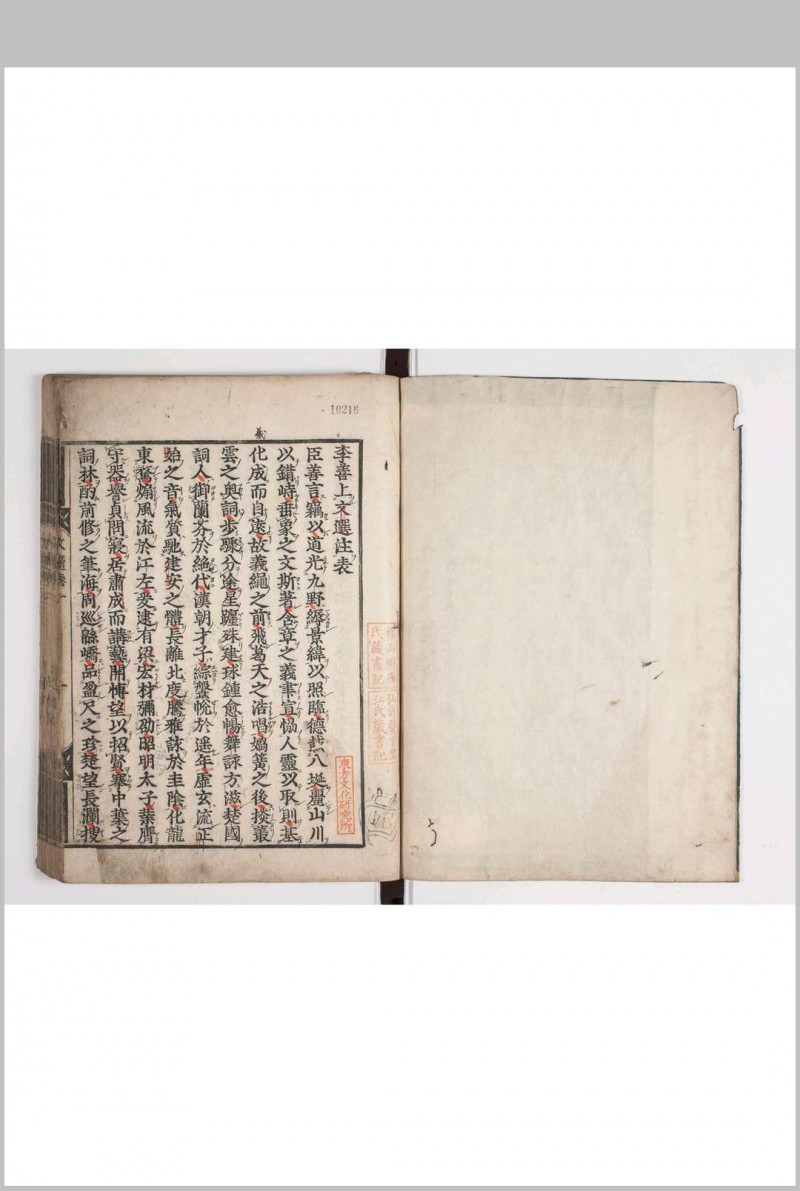 10216
義
李善上文選注表
臣善言竊以道光九野縟景緯以照臨德載八埏麗山川
以錯峙垂象之文斯著含章之義聿宣恊人靈以取則基
化成而自遠故義繩之前飛葛天之浩唱媧簧之後掞叢
雲之奥詞步驟分途星躔殊建球鍾愈暢舞詠方滋楚國
詞人御蘭芬於絶代漢朝才子綜鞶帨於遥年虛玄流正
始之音氣質馳建安之體長離北度騰雅詠於圭陰化龍
東鶩煽風流於江左爰逮有梁宏材彌劭昭明太子業膺
守器譽貞問寢居肅成而講藝開博望以招賢搴中葉之
詞林酌前修之筆海周巡緜嶠品盈尺之珍楚望長瀾搜
東方文化研究所
氏藏書記
江氏藏書記